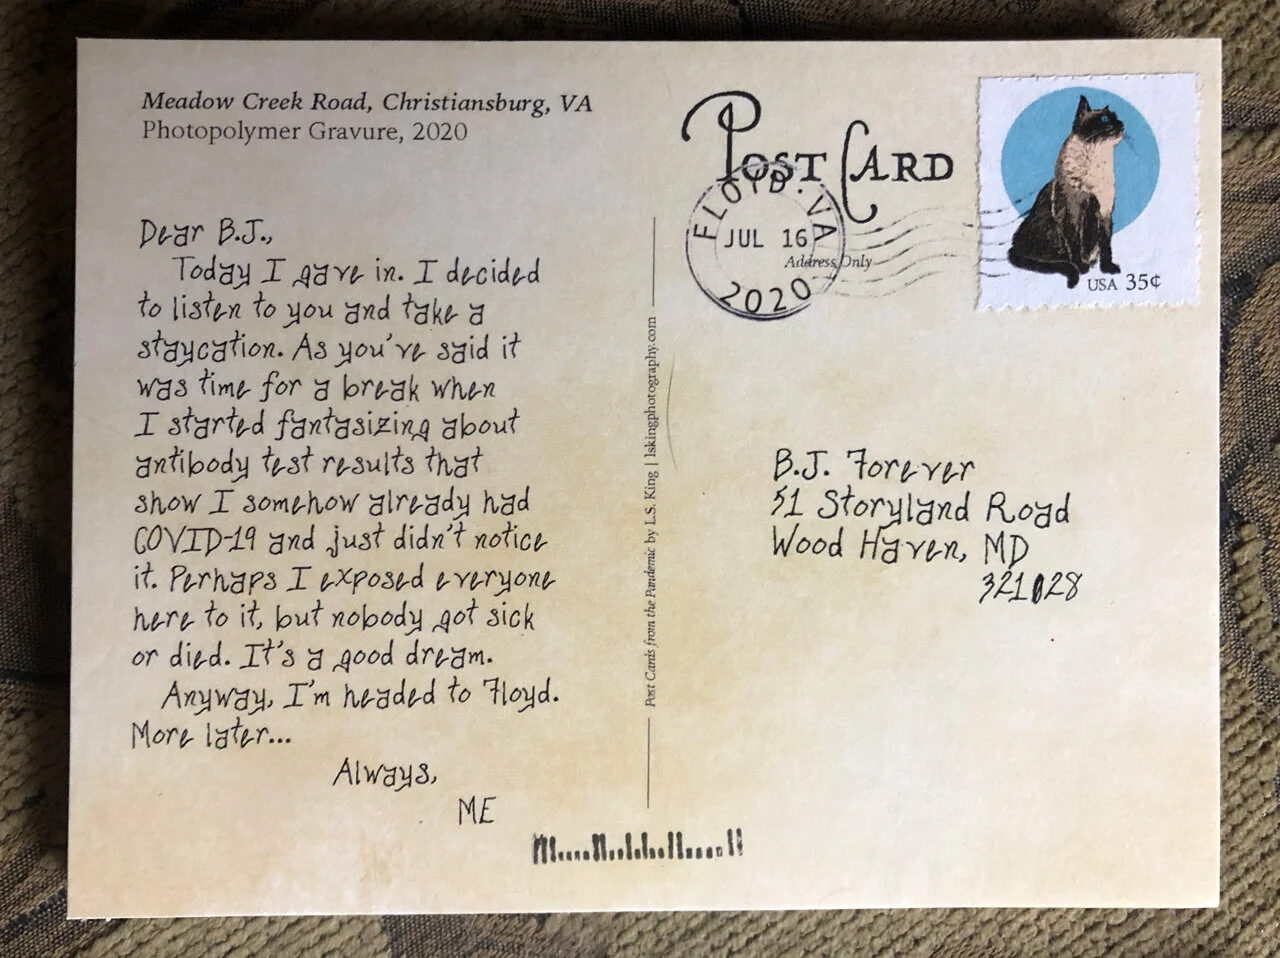 Meadow Creek Road, Christiansburg, VA
Photopolymer Gravure, 2020
Dear B.J.,
Today I gave in. I decided
to listen to you and take a
staycation. As you've said it
was time for a break when
I started fantasizing about
antibody test results that
show I somehow already had
COVID-19 and just didn't notice
it. Perhaps I exposed everyone
here to it, but nobody got sick
or died. It's a good dream.
Anyway, I'm headed to Floyd.
More later...
Always,
ME
Post Cards from the Pandemic by L.S. King | lskingphotography.com
Post Card
Address Only
FLOYD. VA
JUL 16
2020
USA 35¢
B.J. Forever
51 Storyland Road
Wood Haven, MD
321028